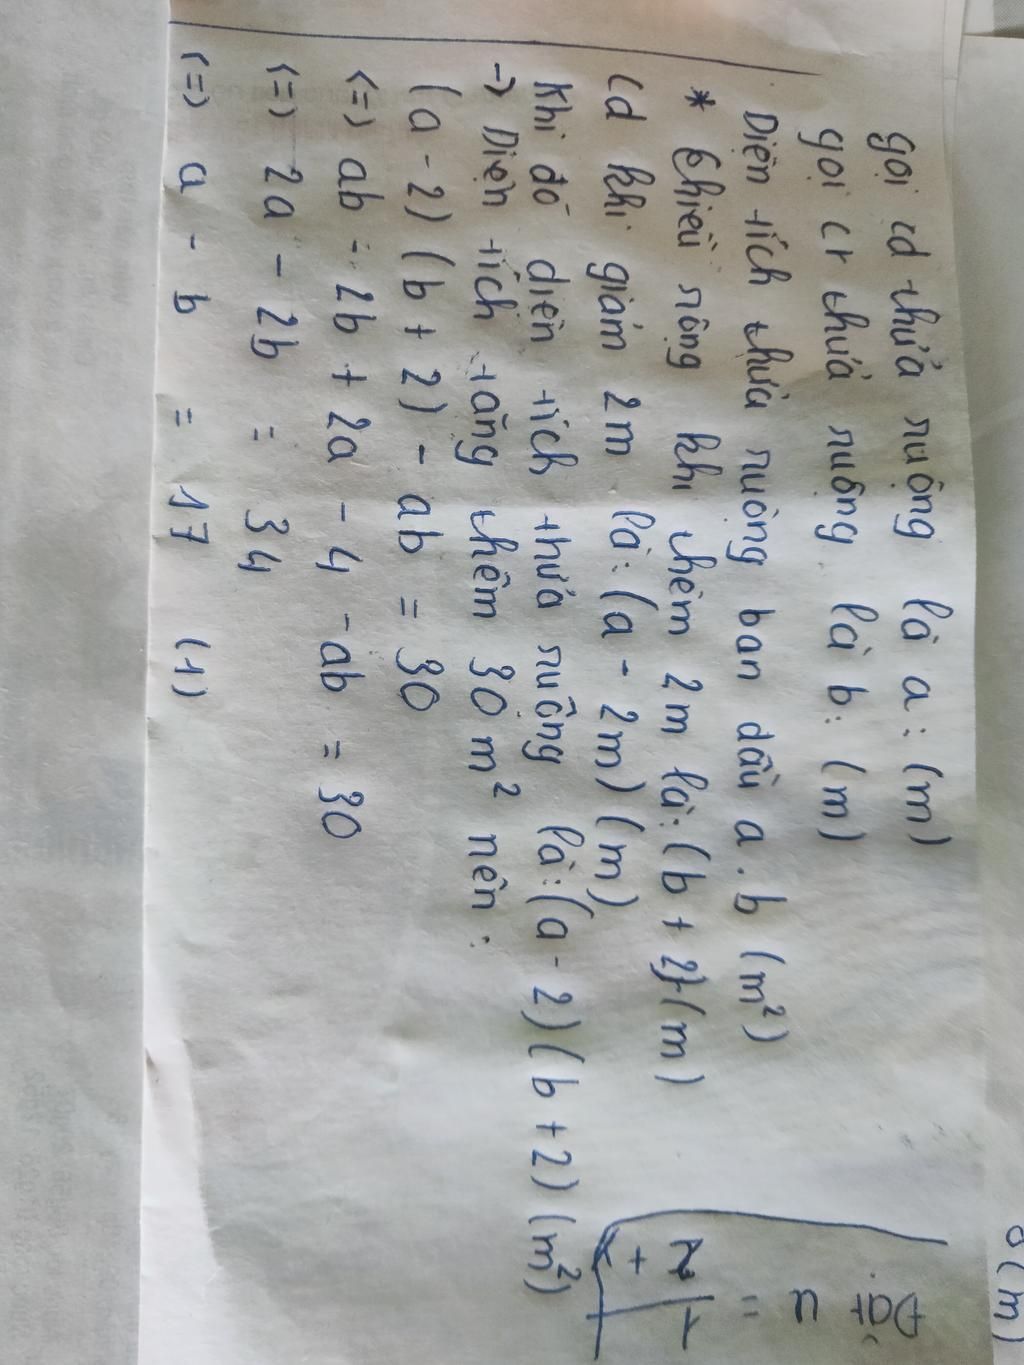 gọi cd thửa ruộng là a: (m)
gọi cr thửa ruộng là b: (m)
Diện tích thửa ruộng ban đầu a.b (m²)
* Chiều rộng khi thêm 2m là: (b + 2) (m)
Cd khi giảm 2m là: (a - 2m) (m)
Khi đó diện tích thửa ruộng là: (a - 2) (b + 2) (m²)
-> Diện tích tăng thêm 30 m² nên:
(a - 2) (b + 2) - ab = 30
<=> ab - 2b + 2a - 4 - ab = 30
<=> 2a - 2b = 34
<=> a - b = 17 (1)
(m)
Đặt
u =